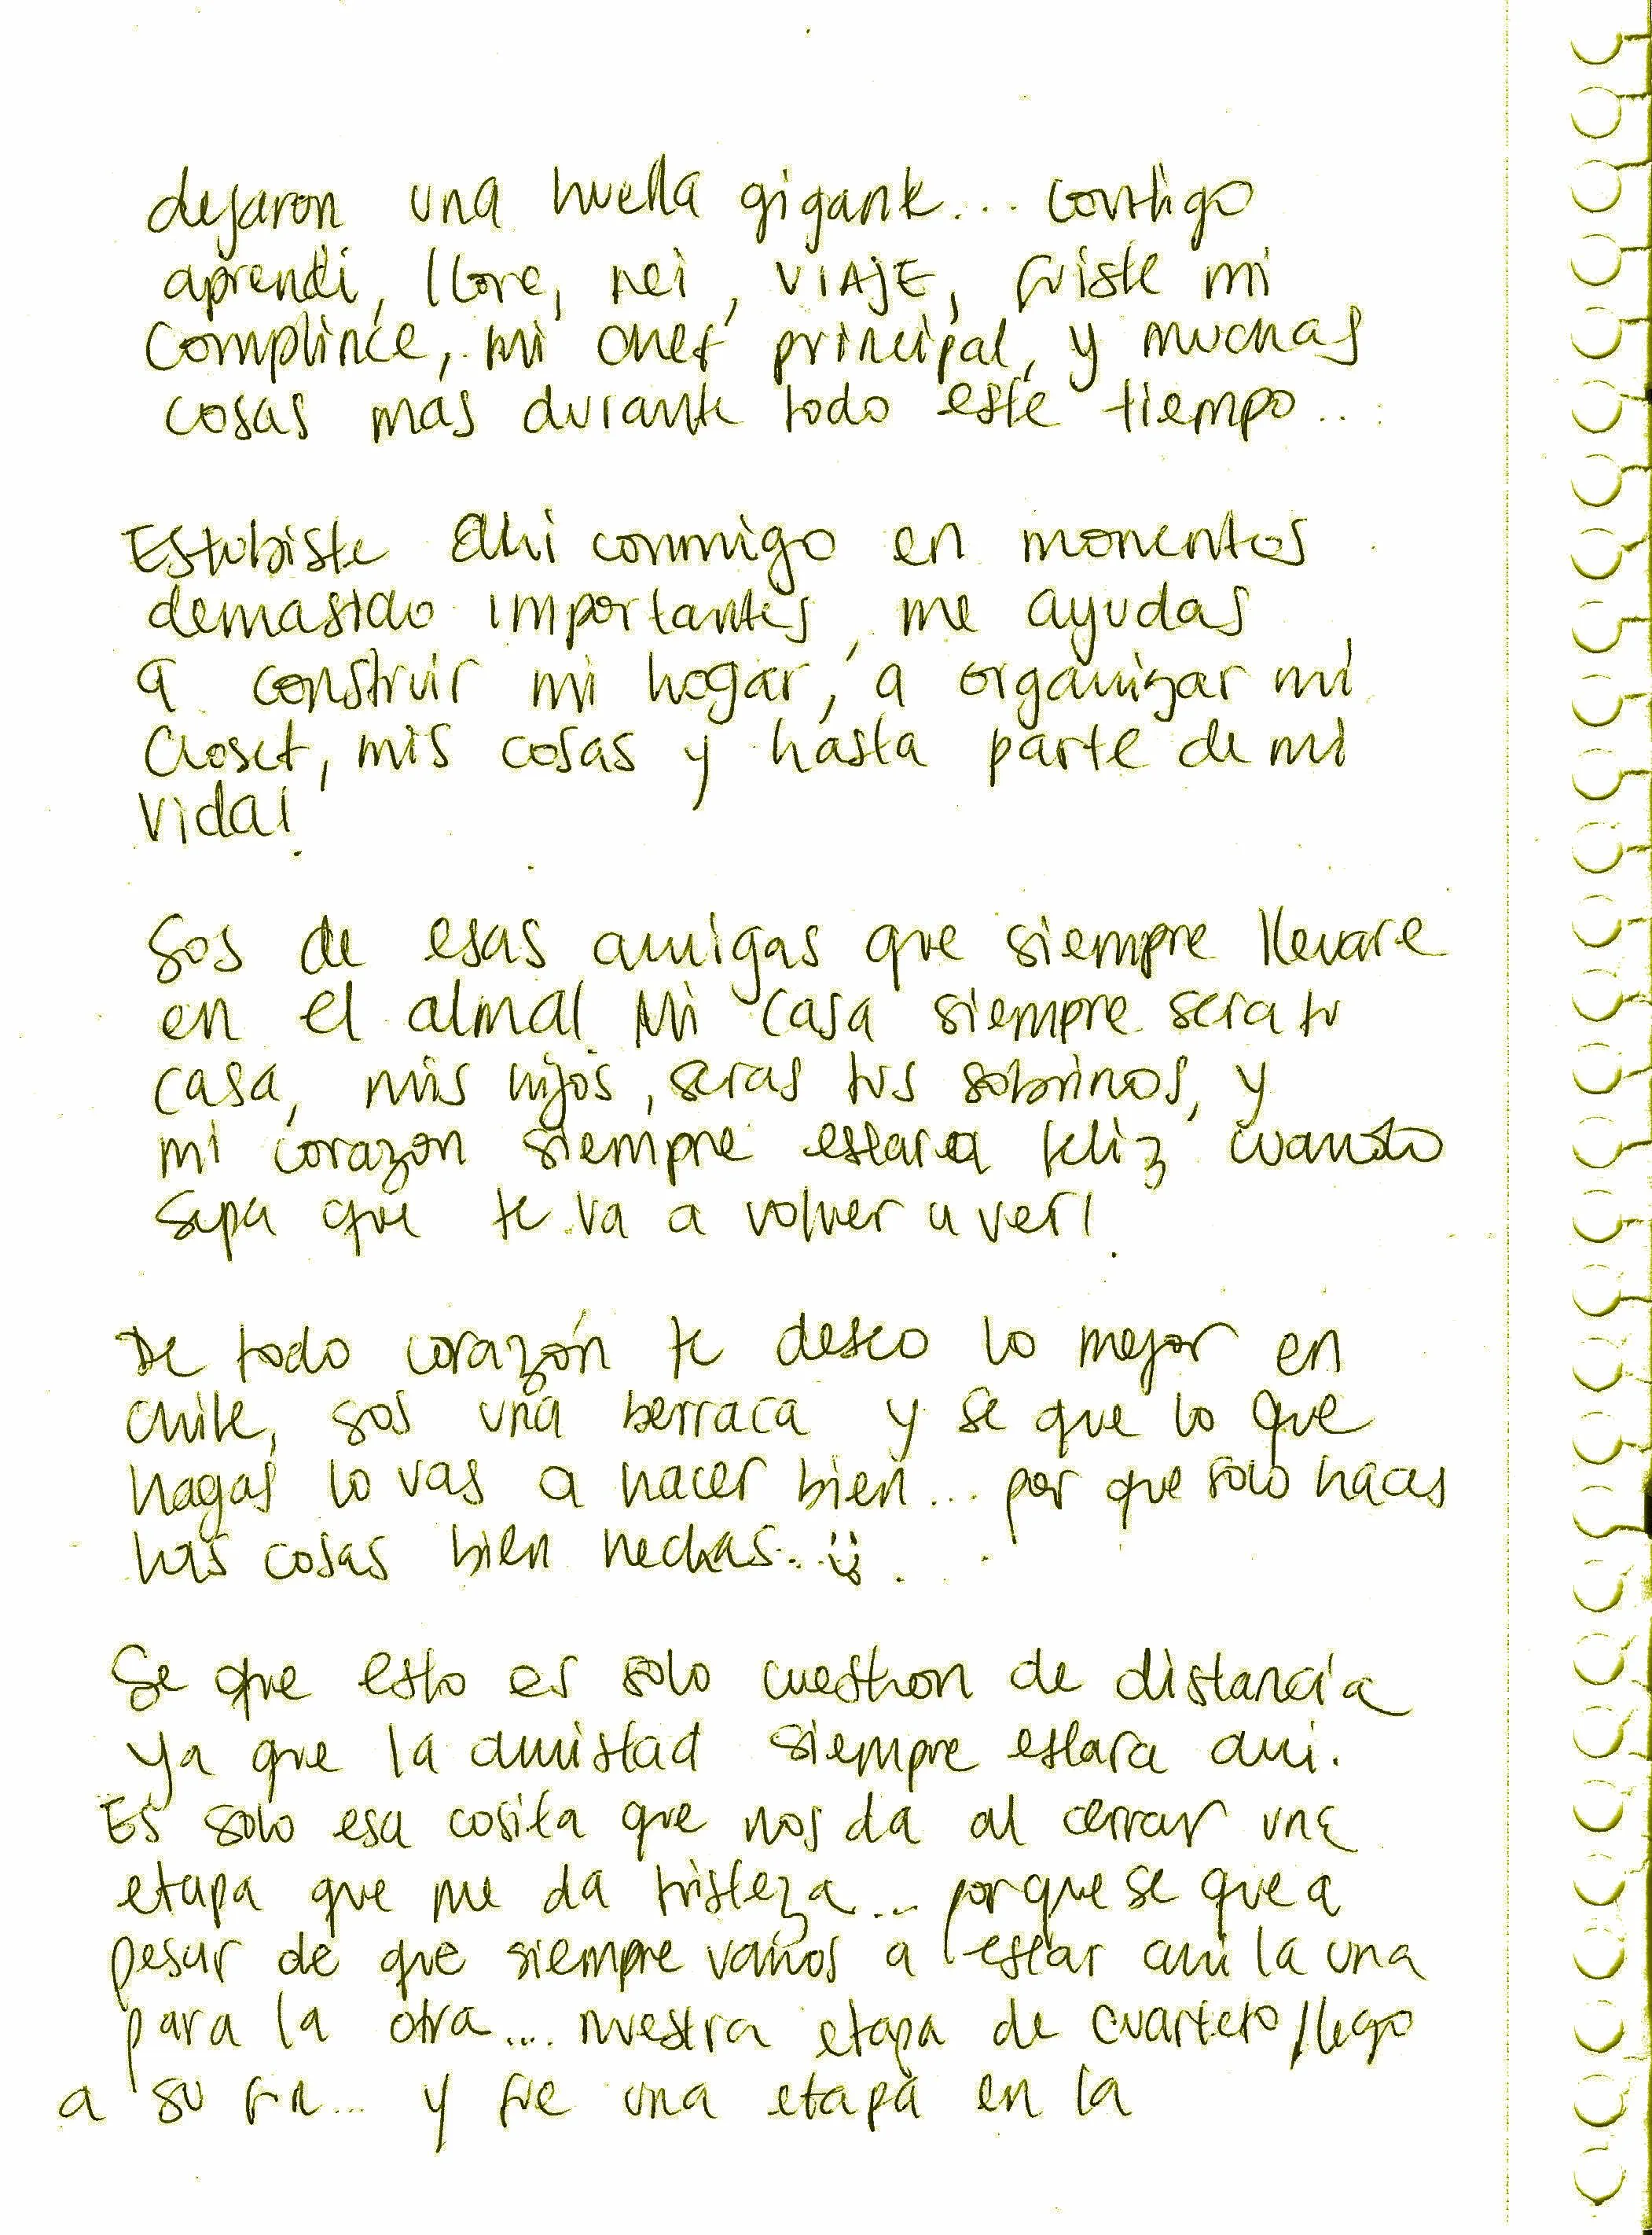 dejaron una huella gigante... contigo
aprendi, llore, rei, VIAJE, fuiste mi
complince, mi chef principal, y muchas
cosas mas durante todo este tiempo...
Estubiste ahi conmigo en momentos
demasido importantes, me ayudas
a construir mi hogar, a organizar mi
closet, mis cosas y hasta parte de mi
vida!
Sos de esas amigas que siempre llevare
en el alma! Mi casa siempre sera tu
casa, mis hijos, seras tus sobrinos, y
mi corazon siempre estara feliz cuando
sepa que te va a volver a ver!
De todo corazón te deseo lo mejor en
chile, sos una berraca y se que lo que
hagas lo vas a hacer bien... por que solo haces
las cosas bien hechas..
Se que esto es solo cuestion de distancia
ya que la amistad siempre estara ahi.
Es solo esa cosita que nos da al cerrar una
etapa que me da tristeza... porque se que a
pesar de que siempre vamos a estar ahi la una
para la otra... nuestra etapa de cuarteto llego
a su fin... y fue una etapa en la